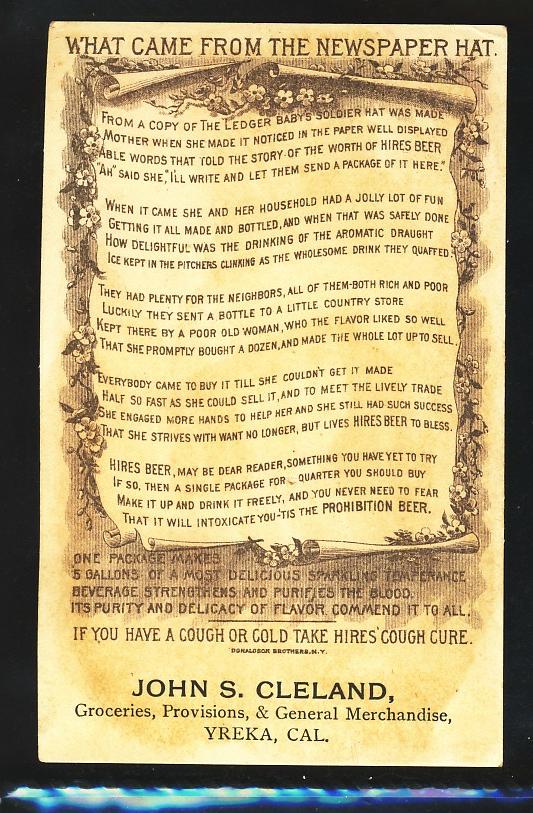 WHAT CAME FROM THE NEWSPAPER HAT.
FROM A COPY OF THE LEDGER BABY'S SOLDIER HAT WAS MADE
MOTHER WHEN SHE MADE IT NOTICED IN THE PAPER WELL DISPLAYED
ABLE WORDS THAT TOLD THE STORY OF THE WORTH OF HIRES BEER
"AH" SAID SHE, "I'LL WRITE AND LET THEM SEND A PACKAGE OF IT HERE."
WHEN IT CAME SHE AND HER HOUSEHOLD HAD A JOLLY LOT OF FUN
GETTING IT ALL MADE AND BOTTLED, AND WHEN THAT WAS SAFELY DONE
HOW DELIGHTFUL WAS THE DRINKING OF THE AROMATIC DRAUGHT
ICE KEPT IN THE PITCHERS CLINKING AS THE WHOLESOME DRINK THEY QUAFFED.
THEY HAD PLENTY FOR THE NEIGHBORS, ALL OF THEM-BOTH RICH AND POOR
LUCKILY THEY SENT A BOTTLE TO A LITTLE COUNTRY STORE
KEPT THERE BY A POOR OLD WOMAN, WHO THE FLAVOR LIKED SO WELL
THAT SHE PROMPTLY BOUGHT A DOZEN, AND MADE THE WHOLE LOT UP TO SELL.
EVERYBODY CAME TO BUY IT TILL SHE COULDN'T GET IT MADE
HALF SO FAST AS SHE COULD SELL IT, AND TO MEET THE LIVELY TRADE
SHE ENGAGED MORE HANDS TO HELP HER AND SHE STILL HAD SUCH SUCCESS
THAT SHE STRIVES WITH WANT NO LONGER, BUT LIVES HIRES BEER TO BLESS.
HIRES BEER, MAY BE DEAR READER, SOMETHING YOU HAVE YET TO TRY
IF SO, THEN A SINGLE PACKAGE FOR QUARTER YOU SHOULD BUY
MAKE IT UP AND DRINK IT FREELY, AND YOU NEVER NEED TO FEAR
THAT IT WILL INTOXICATE YOU-'TIS THE PROHIBITION BEER.
ONE PACKAGE MAKES
5 GALLONS OF A MOST DELICIOUS SPARKLING TEMPERANCE
BEVERAGE STRENGTHENS AND PURIFIES THE BLOOD.
ITS PURITY AND DELICACY OF FLAVOR COMMEND IT TO ALL.
IF YOU HAVE A COUGH OR COLD TAKE HIRES' COUGH CURE.
DONALDSON BROTHERS. N.Y.
JOHN S. CLELAND,
Groceries, Provisions, & General Merchandise,
YREKA, CAL.